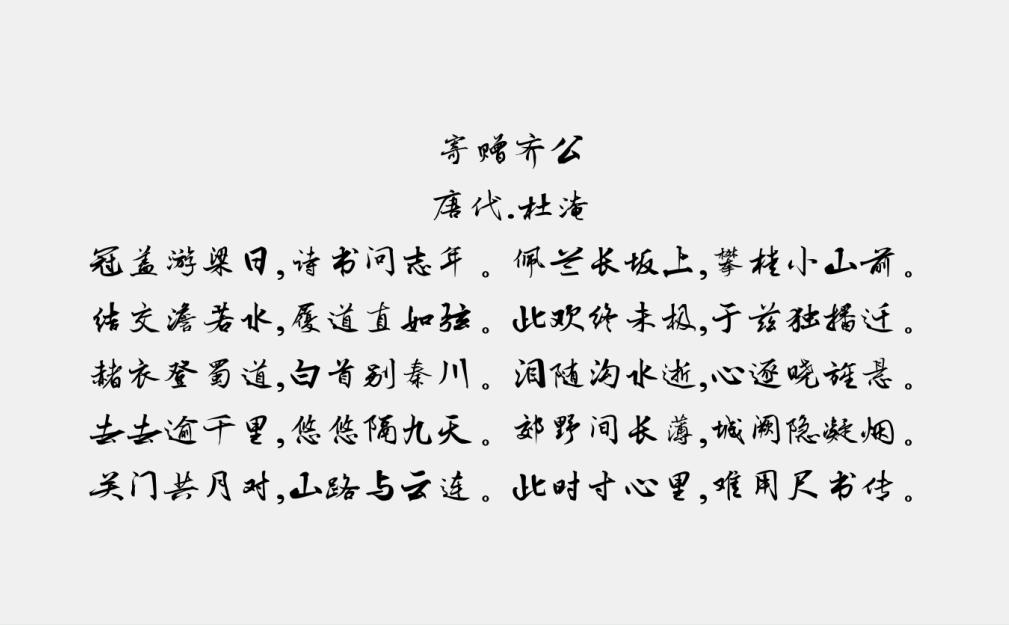 寄赠齐公
唐代.杜淹
冠盖游梁日,诗书问志年。佩兰长坂上,攀桂小山前。
结交澹若水,履道直如弦。此欢终未极,于兹独播迁。
赭衣登蜀道,白首别秦川。泪随沟水逝,心逐晓旌悬。
去去逾千里,悠悠隔九天。郊野间长薄,城阙隐凝烟。
关门共月对,山路与云连。此时寸心里,难用尺书传。